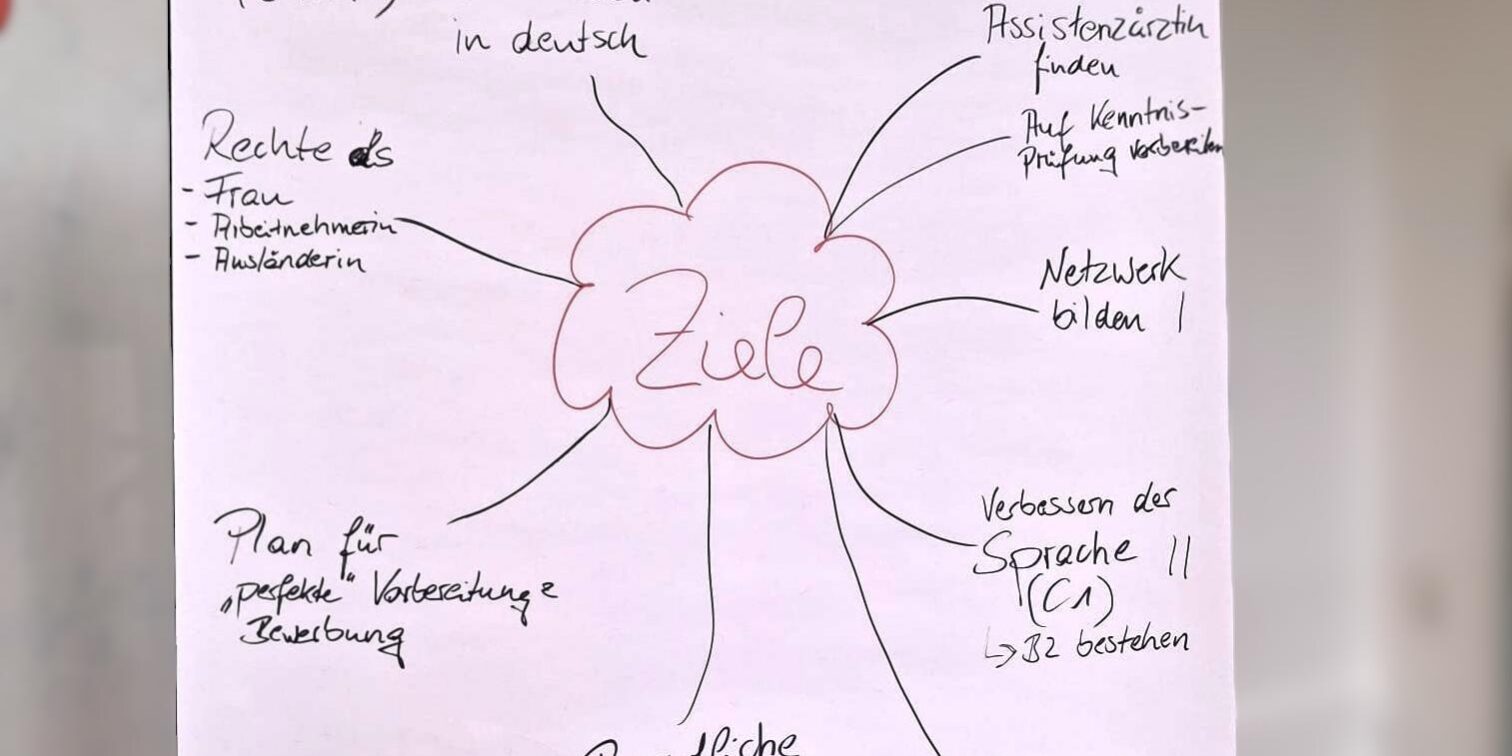 in deutsch
Assistenzärztin
finden
Auf Kenntnis-
Prüfung vorbereiten
Rechte als
- Frau
- Arbeitnehmerin
- Ausländerin
Netzwerk
bilden |
Ziele
Verbessern der
Sprache ||
(C1)
↳ B2 bestehen
Plan für
„perfekte" Vorbereitung
Bewerbung